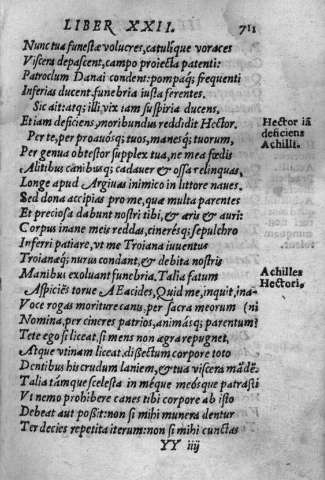 LIBER XXII. 711
Nunc tua funestæ volucres, catulíque voraces
Viscera depascent, campo proiecta patenti:
Patroclum Danai condent: pompaq; frequenti
Inferias ducent, funebria iusta ferentes.
Sic ait: atq; illi, vix iam suspiria ducens,
Etiam deficiens, moribundus reddidit Hector.
Hector iā deficiens Achilli.
Per te, per proauósq; tuos, manésq; tuorum,
Per genua obtestor supplex tua, ne mea fœdis
Alitibus canibusq; cadauer & ossa relinquas,
Longe apud Argiuas inimico in littore naues.
Sed dona accipias pro me, quæ multa parentes
Et preciosa dabunt nostri tibi, & æris & auri:
Corpus inane meis reddas, cinerésq; sepulchro
Inferri patiare, vt me Troiana iuuentus
Troianæq; nurus condant, & debita nostris
Manibus exoluant funebria. Talia fatum
Achilles Hectori.
Aspiciēs torue AEacides, Quid me, inquit, ina-
Voce rogas moriture canis, per sacra meorum (ni
Nomina, per cineres patrios, animásq; parentum?
Tete ego si liceat, si mens non agra repugnet,
Atque vtinam liceat, dissectum corpore toto
Dentibus his crudum laniem, & tua viscera mādē.
Talia támque scelesta in méque meósque patrasti
Vt nemo prohibere canes tibi corpore ab isto
Debeat aut possit: non si mihi munera dentur
Ter decies repetita iterum: non si mihi cunctas
YY iiij